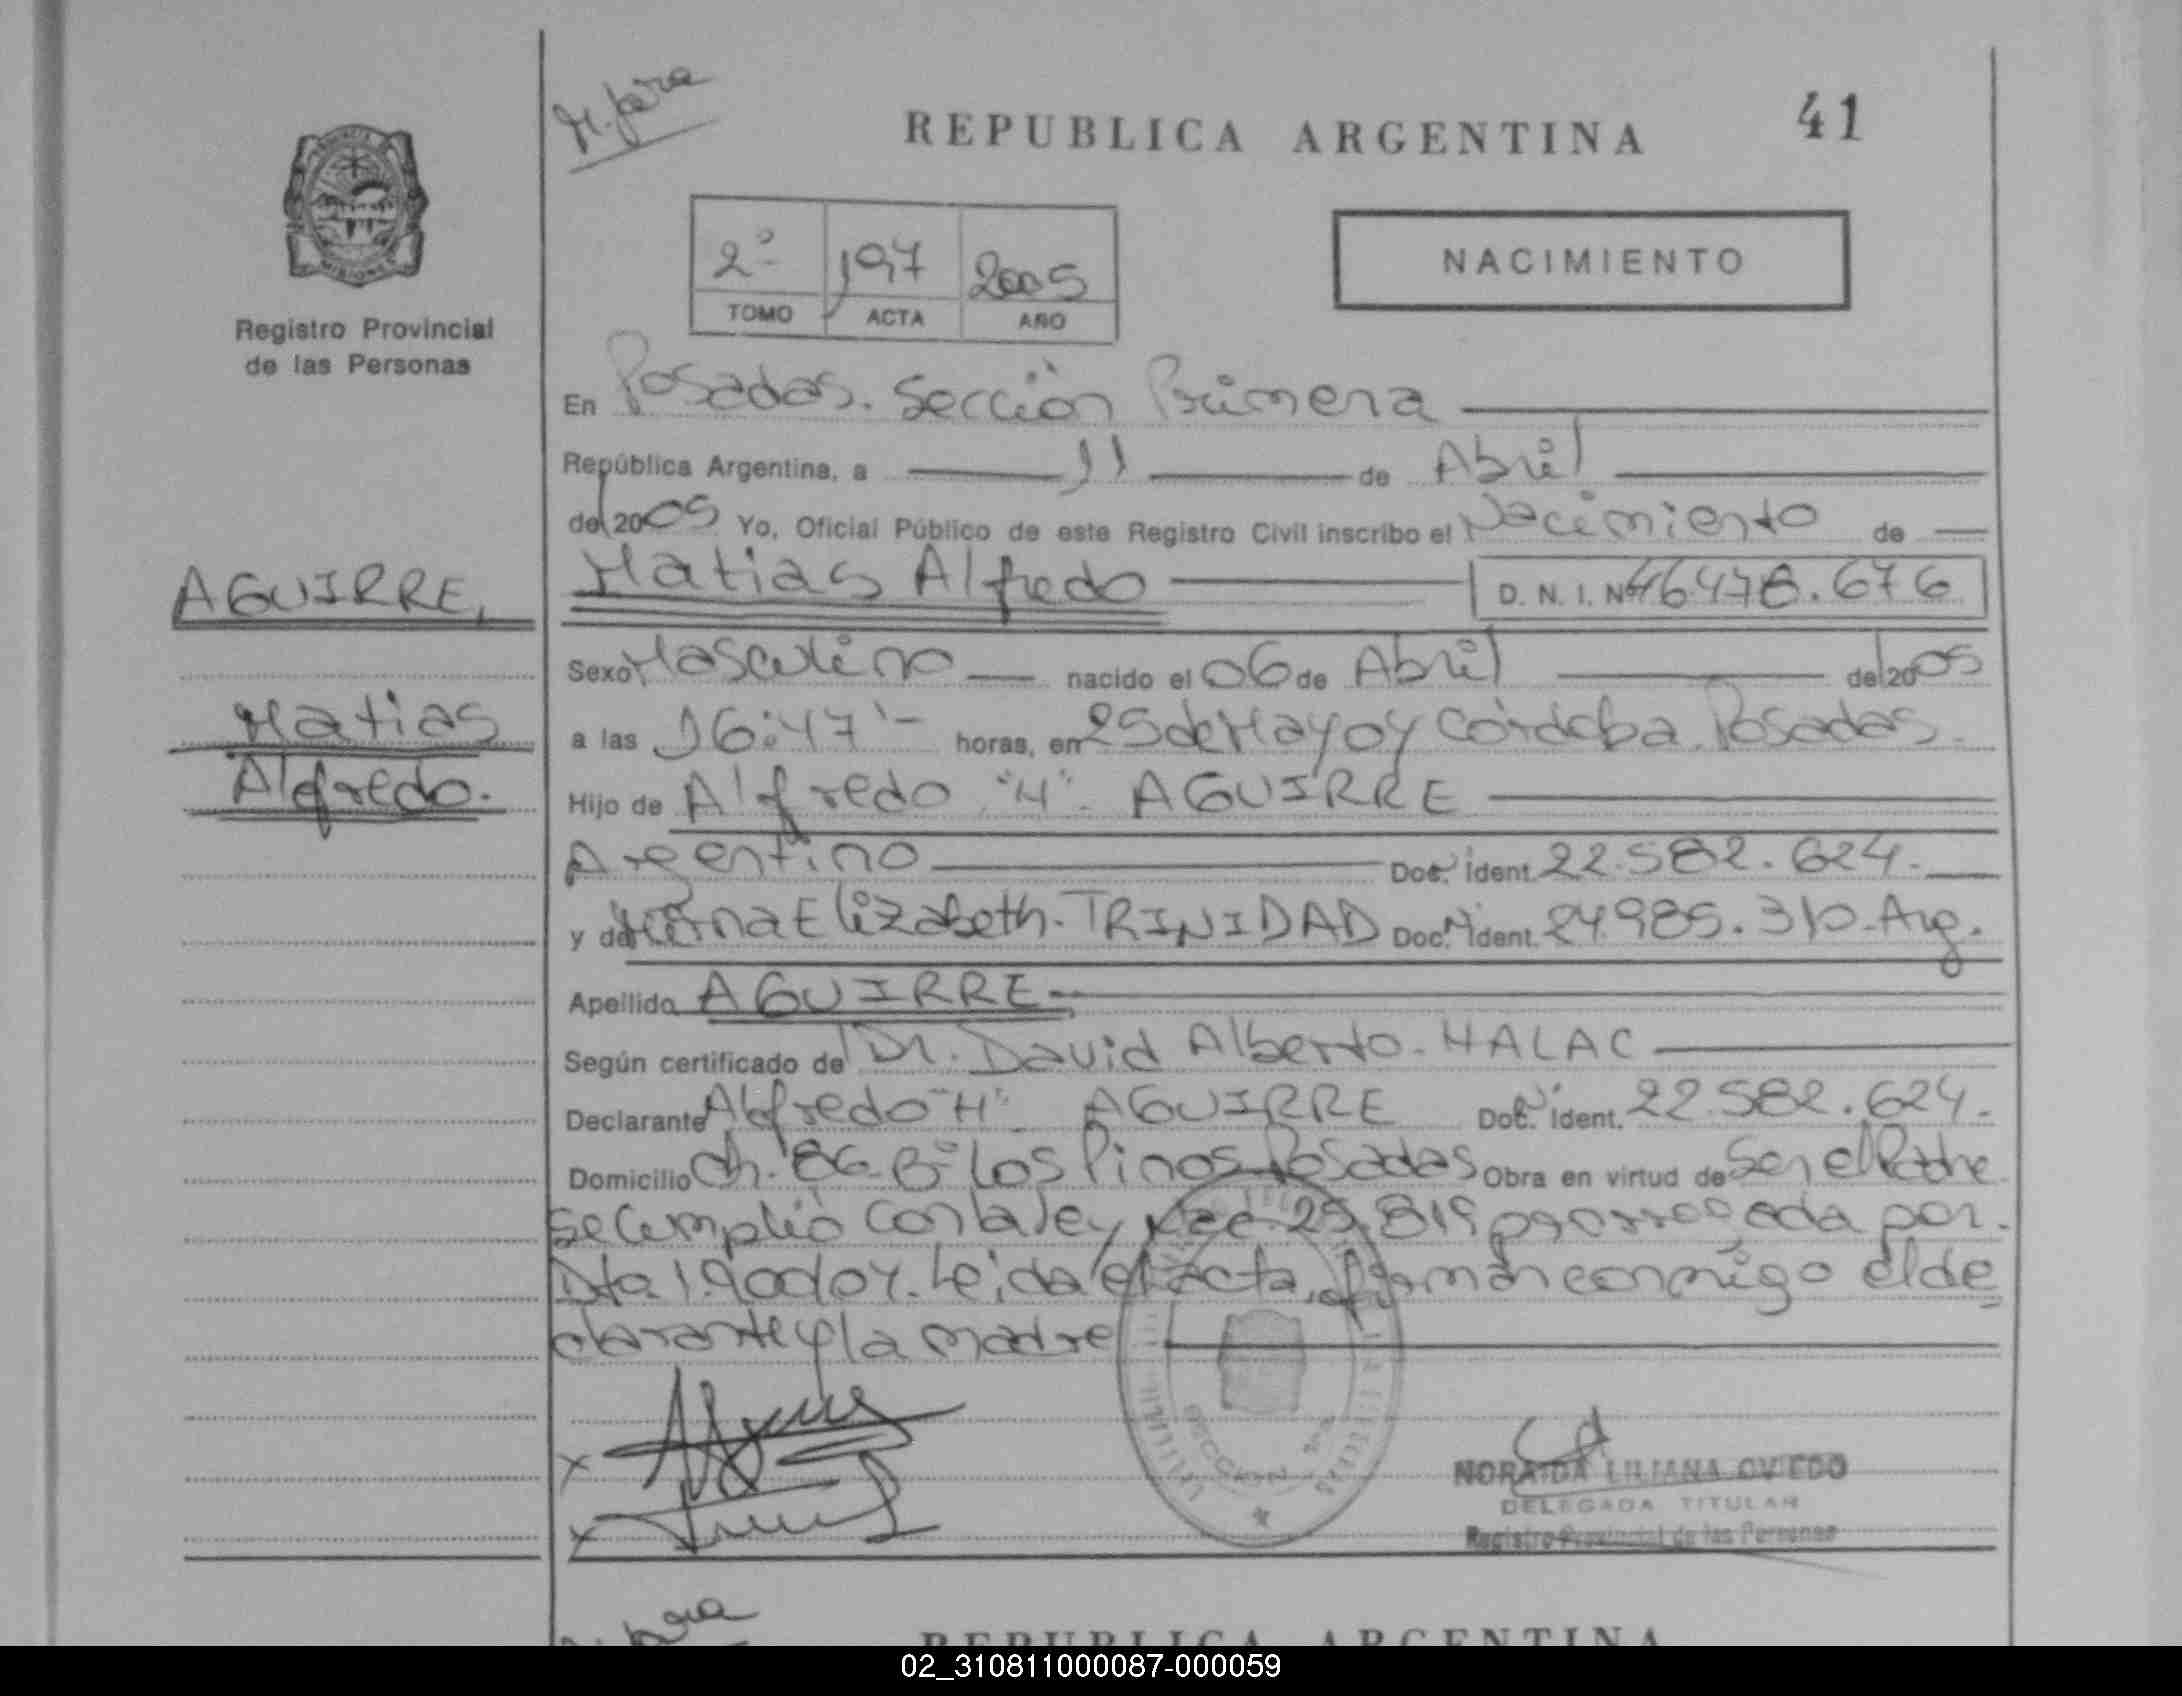 REPUBLICA ARGENTINA
41
PROVINCIA
MISIONES
Registro Provincial
de las Personas
2º 197 2005
TOMO ACTA AÑO
NACIMIENTO
En Posadas. Sección Primera
República Argentina, a 11 de Abril
del 2005 Yo, Oficial Público de este Registro Civil inscribo el Nacimiento de
AGUIRRE,
Matias Alfredo D. N. I. Nº 46.478.676
Sexo Masculino nacido el 06 de Abril del 2005
Matias
a las 16:47'- horas, en 25 de Mayo y Córdoba. Posadas.
Alfredo.
Hijo de Alfredo "H". AGUIRRE
Argentino Doc. ident. 22.582.624.
y de Elizabeth. TRINIDAD Doc. ident. 24.985.310. Arg.
Apellido AGUIRRE.
Según certificado de Dr. David Alberto. HALAC
Declarante Alfredo "H". AGUIRRE Doc. ident. 22.582.624.
Domicilio Ch. 86. Bº Los Pinos. Posadas Obra en virtud de Ser el Padre
se cumplió con la ley 25.819 prorrogada por.
Dto. Leida el acta, firman conmigo el de
clarante y la madre
SECCION
NORAIDA LILIANA OVIEDO
DELEGADA TITULAR
Registro Provincial de las Personas
REPUBLICA ARGENTINA
02_310811000087-000059